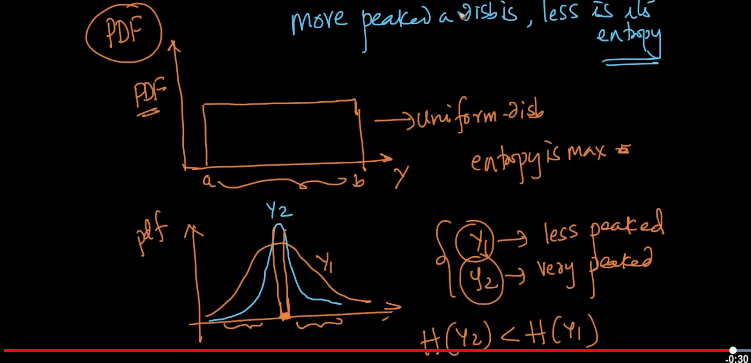 more peaked a disb is, less is its
entropy
PDF
PDF
uniform-disb
entropy is max
a
b
Y
Y2
pdf
Y1
Y1 → less peaked
Y2 → very peaked
H(Y2) < H(Y1)
-0:30